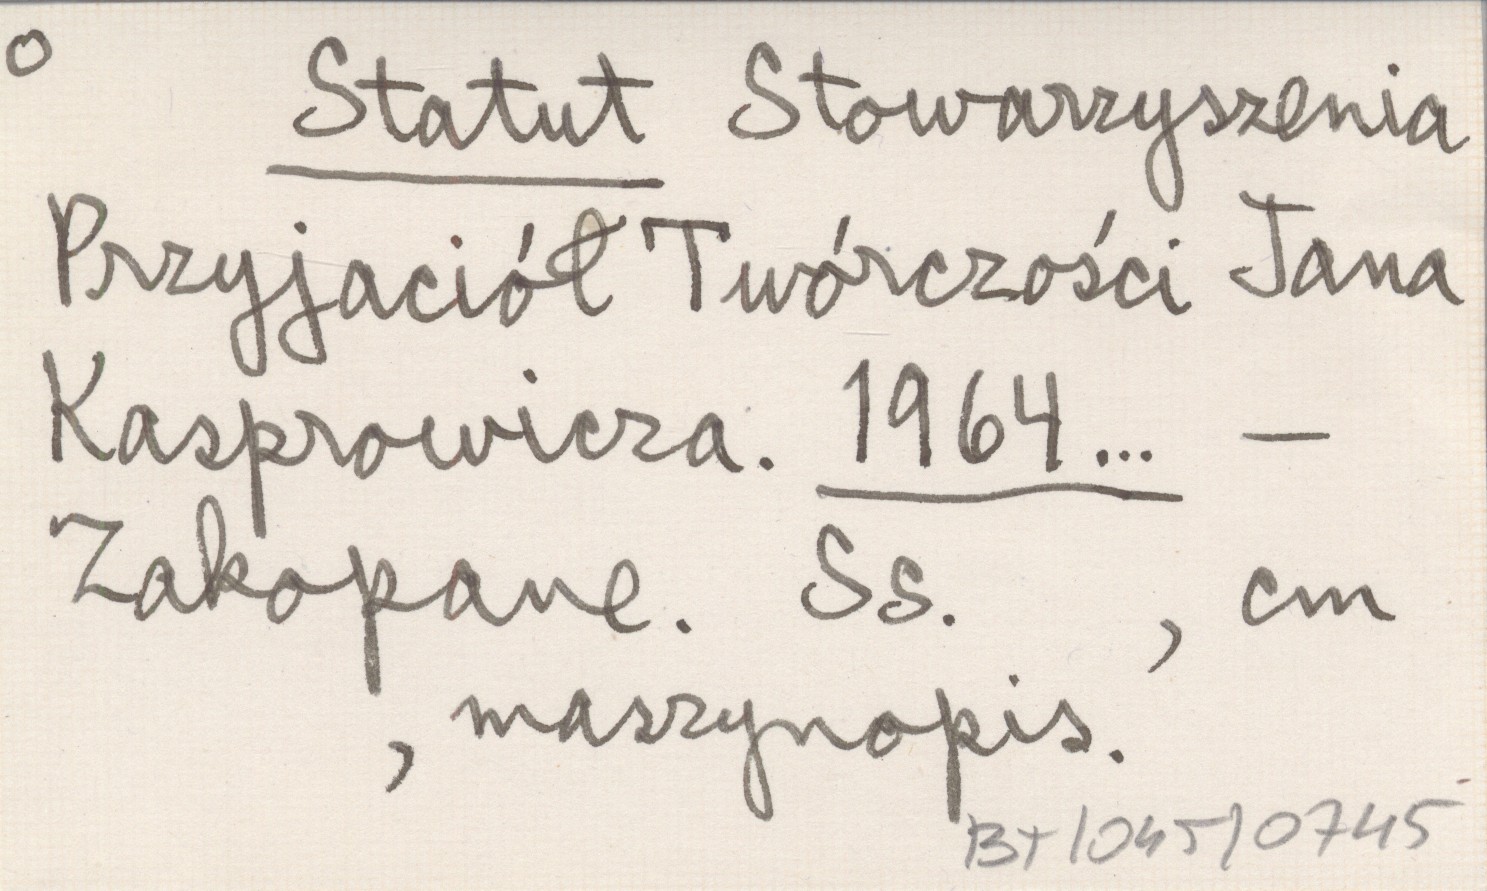 o Statut Stowarzyszenia
Przyjaciół Twórczości Jana
Kasprowicza. 1964... —
Zakopane. Ss. , cm
, maszynopis.
BT/045/0745